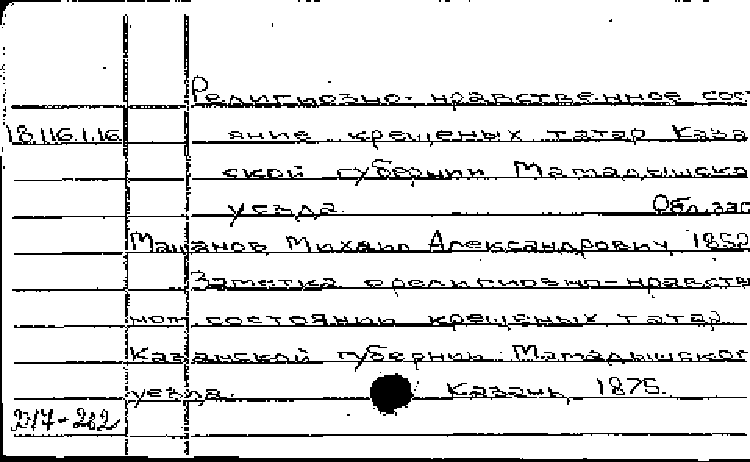 Религиозно-нравственное сос
18.116.1.16 яние крещеных татар Каза
ской губернии Мамадышско
уезда. Обл. заг
Машанов, Михаил Александрович, 1852
Заметка о религиозно-нравств
ном состоянии крещеных татар
Казанской губернии Мамадышског
уезда. Казань, 1875.